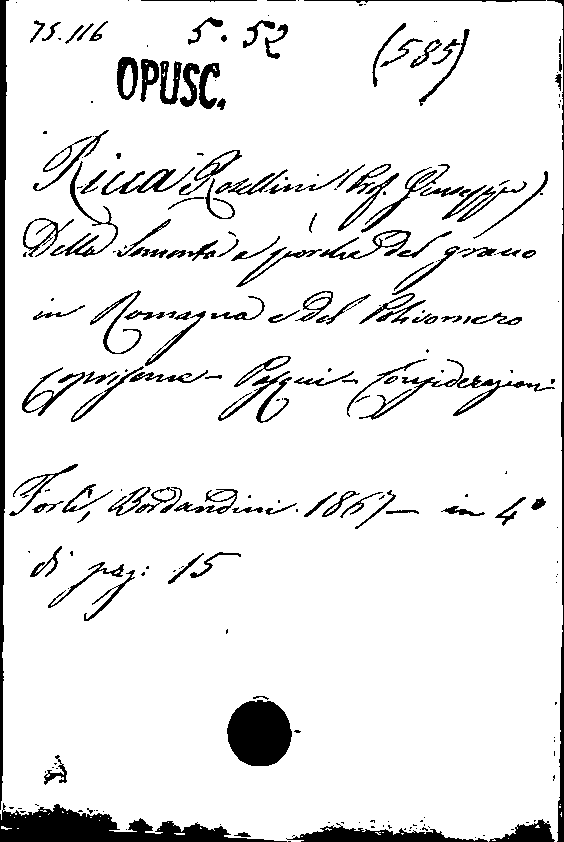 75.116 5.52 (585)
OPUSC.
Ricca Rosellini (Prof. Giuseppe).
Della Sementa a porche del grano
in Romagna e del Polivomero
Copriseme - Pasqui - Considerazioni
Forlì, Bordandini. 1867 - in 4º
di pag: 15